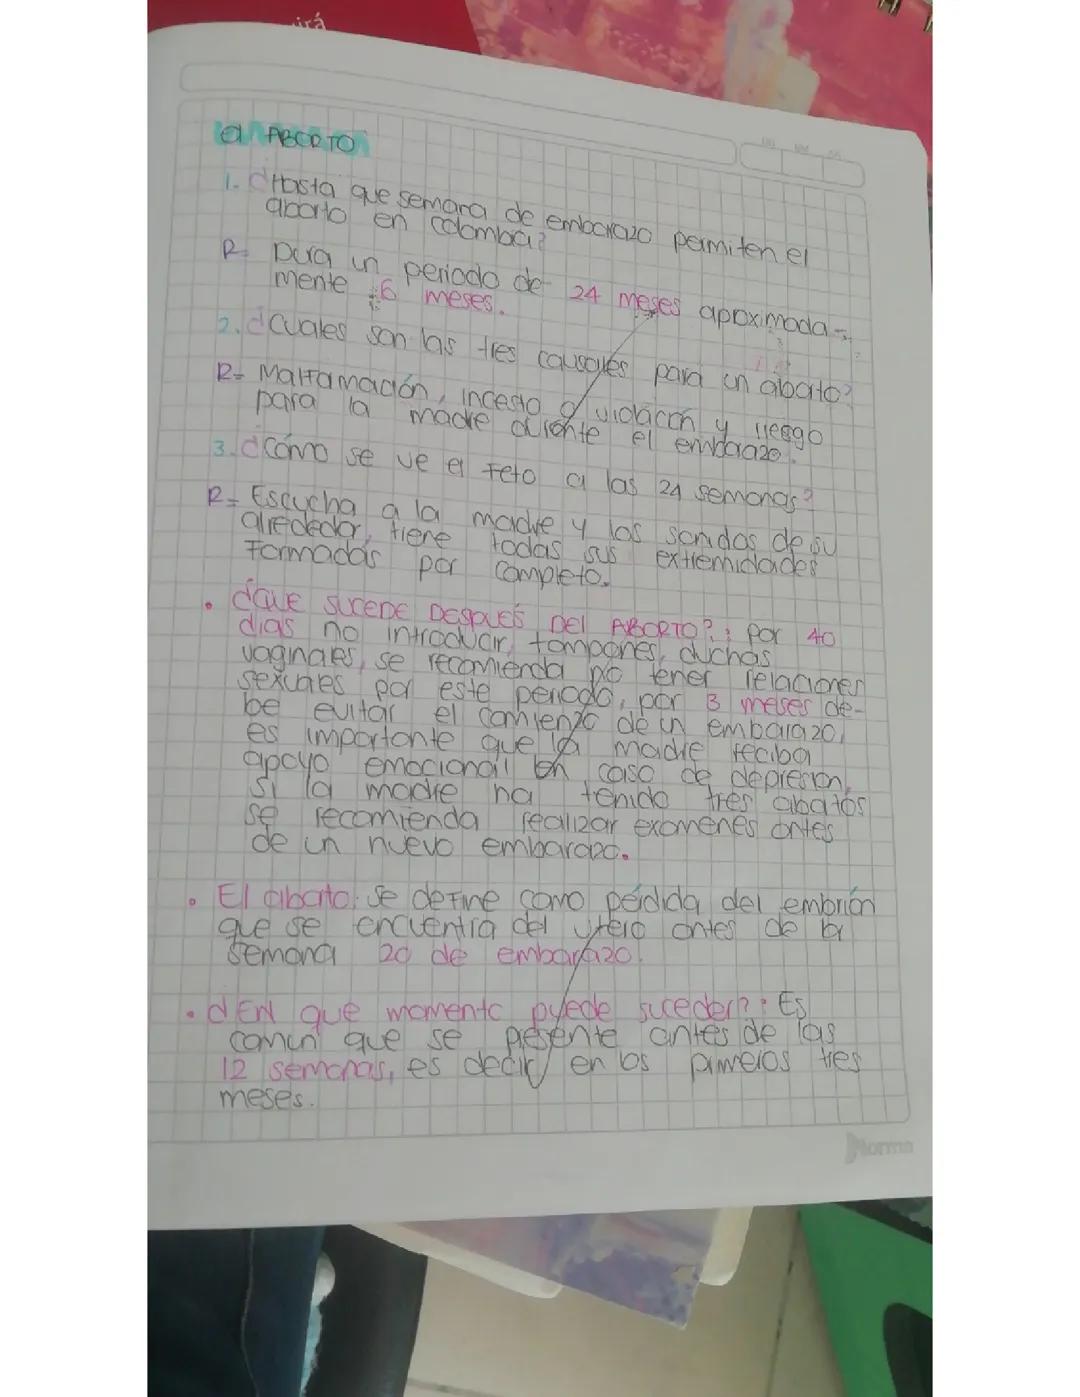 uirá
el ABORTO
1. ¿Hasta que semana de embarazo permiten el
aborto en colombia?
R- Dura un periodo de 24 meses aproximada-
mente 6 meses.
2. ¿Cuales son las tres causales para un aborto?
R- Malformación, incesto o violación y riesgo
para la madre durante el embarazo.
3. ¿Cómo se ve el feto a las 24 semanas?
R- Escucha a la madre y los sonidos de su
alrededor, tiene todas sus extremidades
Formadas por completo.
• ¿QUE SUCEDE DESPUÉS DEL ABORTO?: por 40
dias no introducir, tampones, duchas
vaginales, se recomienda no tener relaciones
sexuales por este periodo, por 3 meses de-
be evitar el comienzo de un embarazo,
es importante que la madre reciba
apoyo emocional en caso de depresion,
si la madre ha tenido tres abortos
se recomienda realizar exámenes antes
de un nuevo embarazo.
• El aborto: Se define como pérdida del embrión
que se encuentra del útero antes de la
semana 20 de embarazo.
• ¿EN que momento puede suceder?: Es
comun que se presente antes de las
12 semanas, es decir, en los primeros tres
meses.
Norma